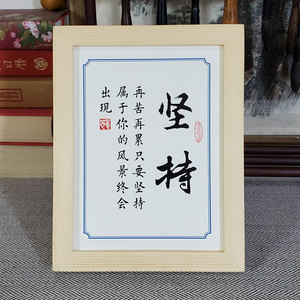 坚持
再苦再累只要坚持
属于你的风景终会
出现